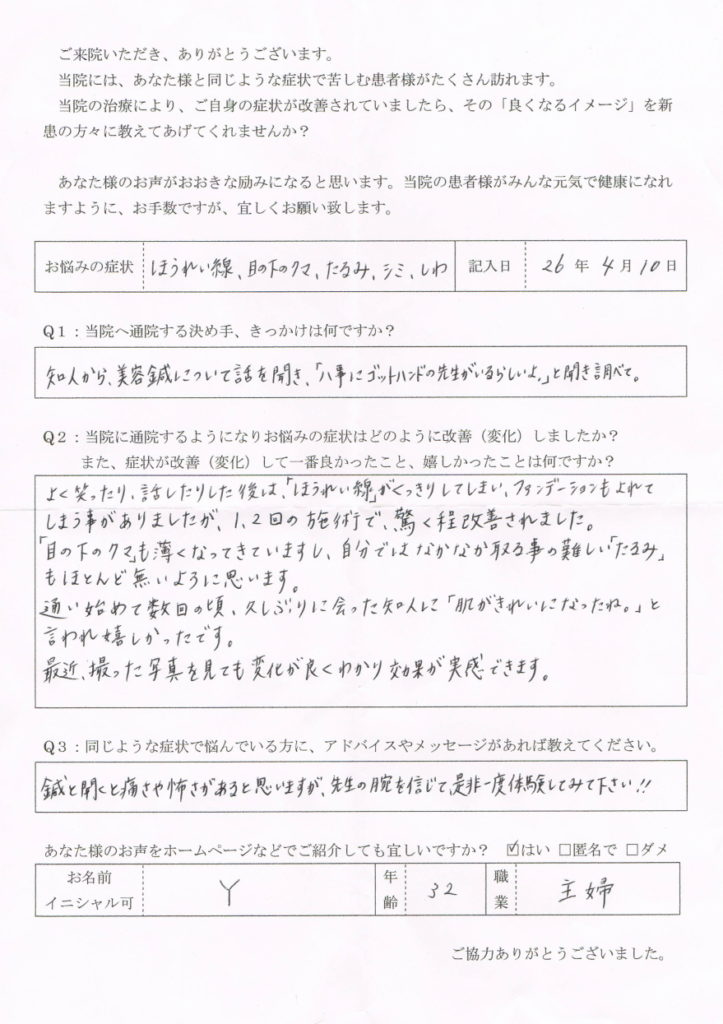 ご来院いただき、ありがとうございます。
当院には、あなた様と同じような症状で苦しむ患者様がたくさん訪れます。
当院の治療により、ご自身の症状が改善されていましたら、その「良くなるイメージ」を新
患の方々に教えてあげてくれませんか？
あなた様のお声がおおきな励みになると思います。当院の患者様がみんな元気で健康になれ
ますように、お手数ですが、宜しくお願い致します。
お悩みの症状 ほうれい線、目の下のクマ、たるみ、シミ、しわ 記入日 26 年 4 月 10 日
Q1：当院へ通院する決め手、きっかけは何ですか？
知人から、美容鍼について話を聞き、「八事にゴットハンドの先生がいるらしいよ。」と聞き調べて。
Q2：当院に通院するようになりお悩みの症状はどのように改善（変化）しましたか？
また、症状が改善（変化）して一番良かったこと、嬉しかったことは何ですか？
よく笑ったり、話したりした後は、「ほうれい線」がくっきりしてしまい、ファンデーションもよれて
しまう事がありましたが、1、2回の施術で、驚く程改善されました。
「目の下のクマ」も薄くなってきていますし、自分ではなかなか取る事の難しい「たるみ」
もほとんど無いように思います。
通い始めて数回の頃、久しぶりに会った知人に「肌がきれいになったね。」と
言われ嬉しかったです。
最近、撮った写真を見ても変化が良くわかり効果が実感できます。
Q3：同じような症状で悩んでいる方に、アドバイスやメッセージがあれば教えてください。
鍼と聞くと痛さや怖さがあると思いますが、先生の腕を信じて、是非一度体験してみて下さい!!
あなた様のお声をホームページなどでご紹介しても宜しいですか？ ☑はい □匿名で □ダメ
お名前
イニシャル可 Y 年齢 32 職業 主婦
ご協力ありがとうございました。